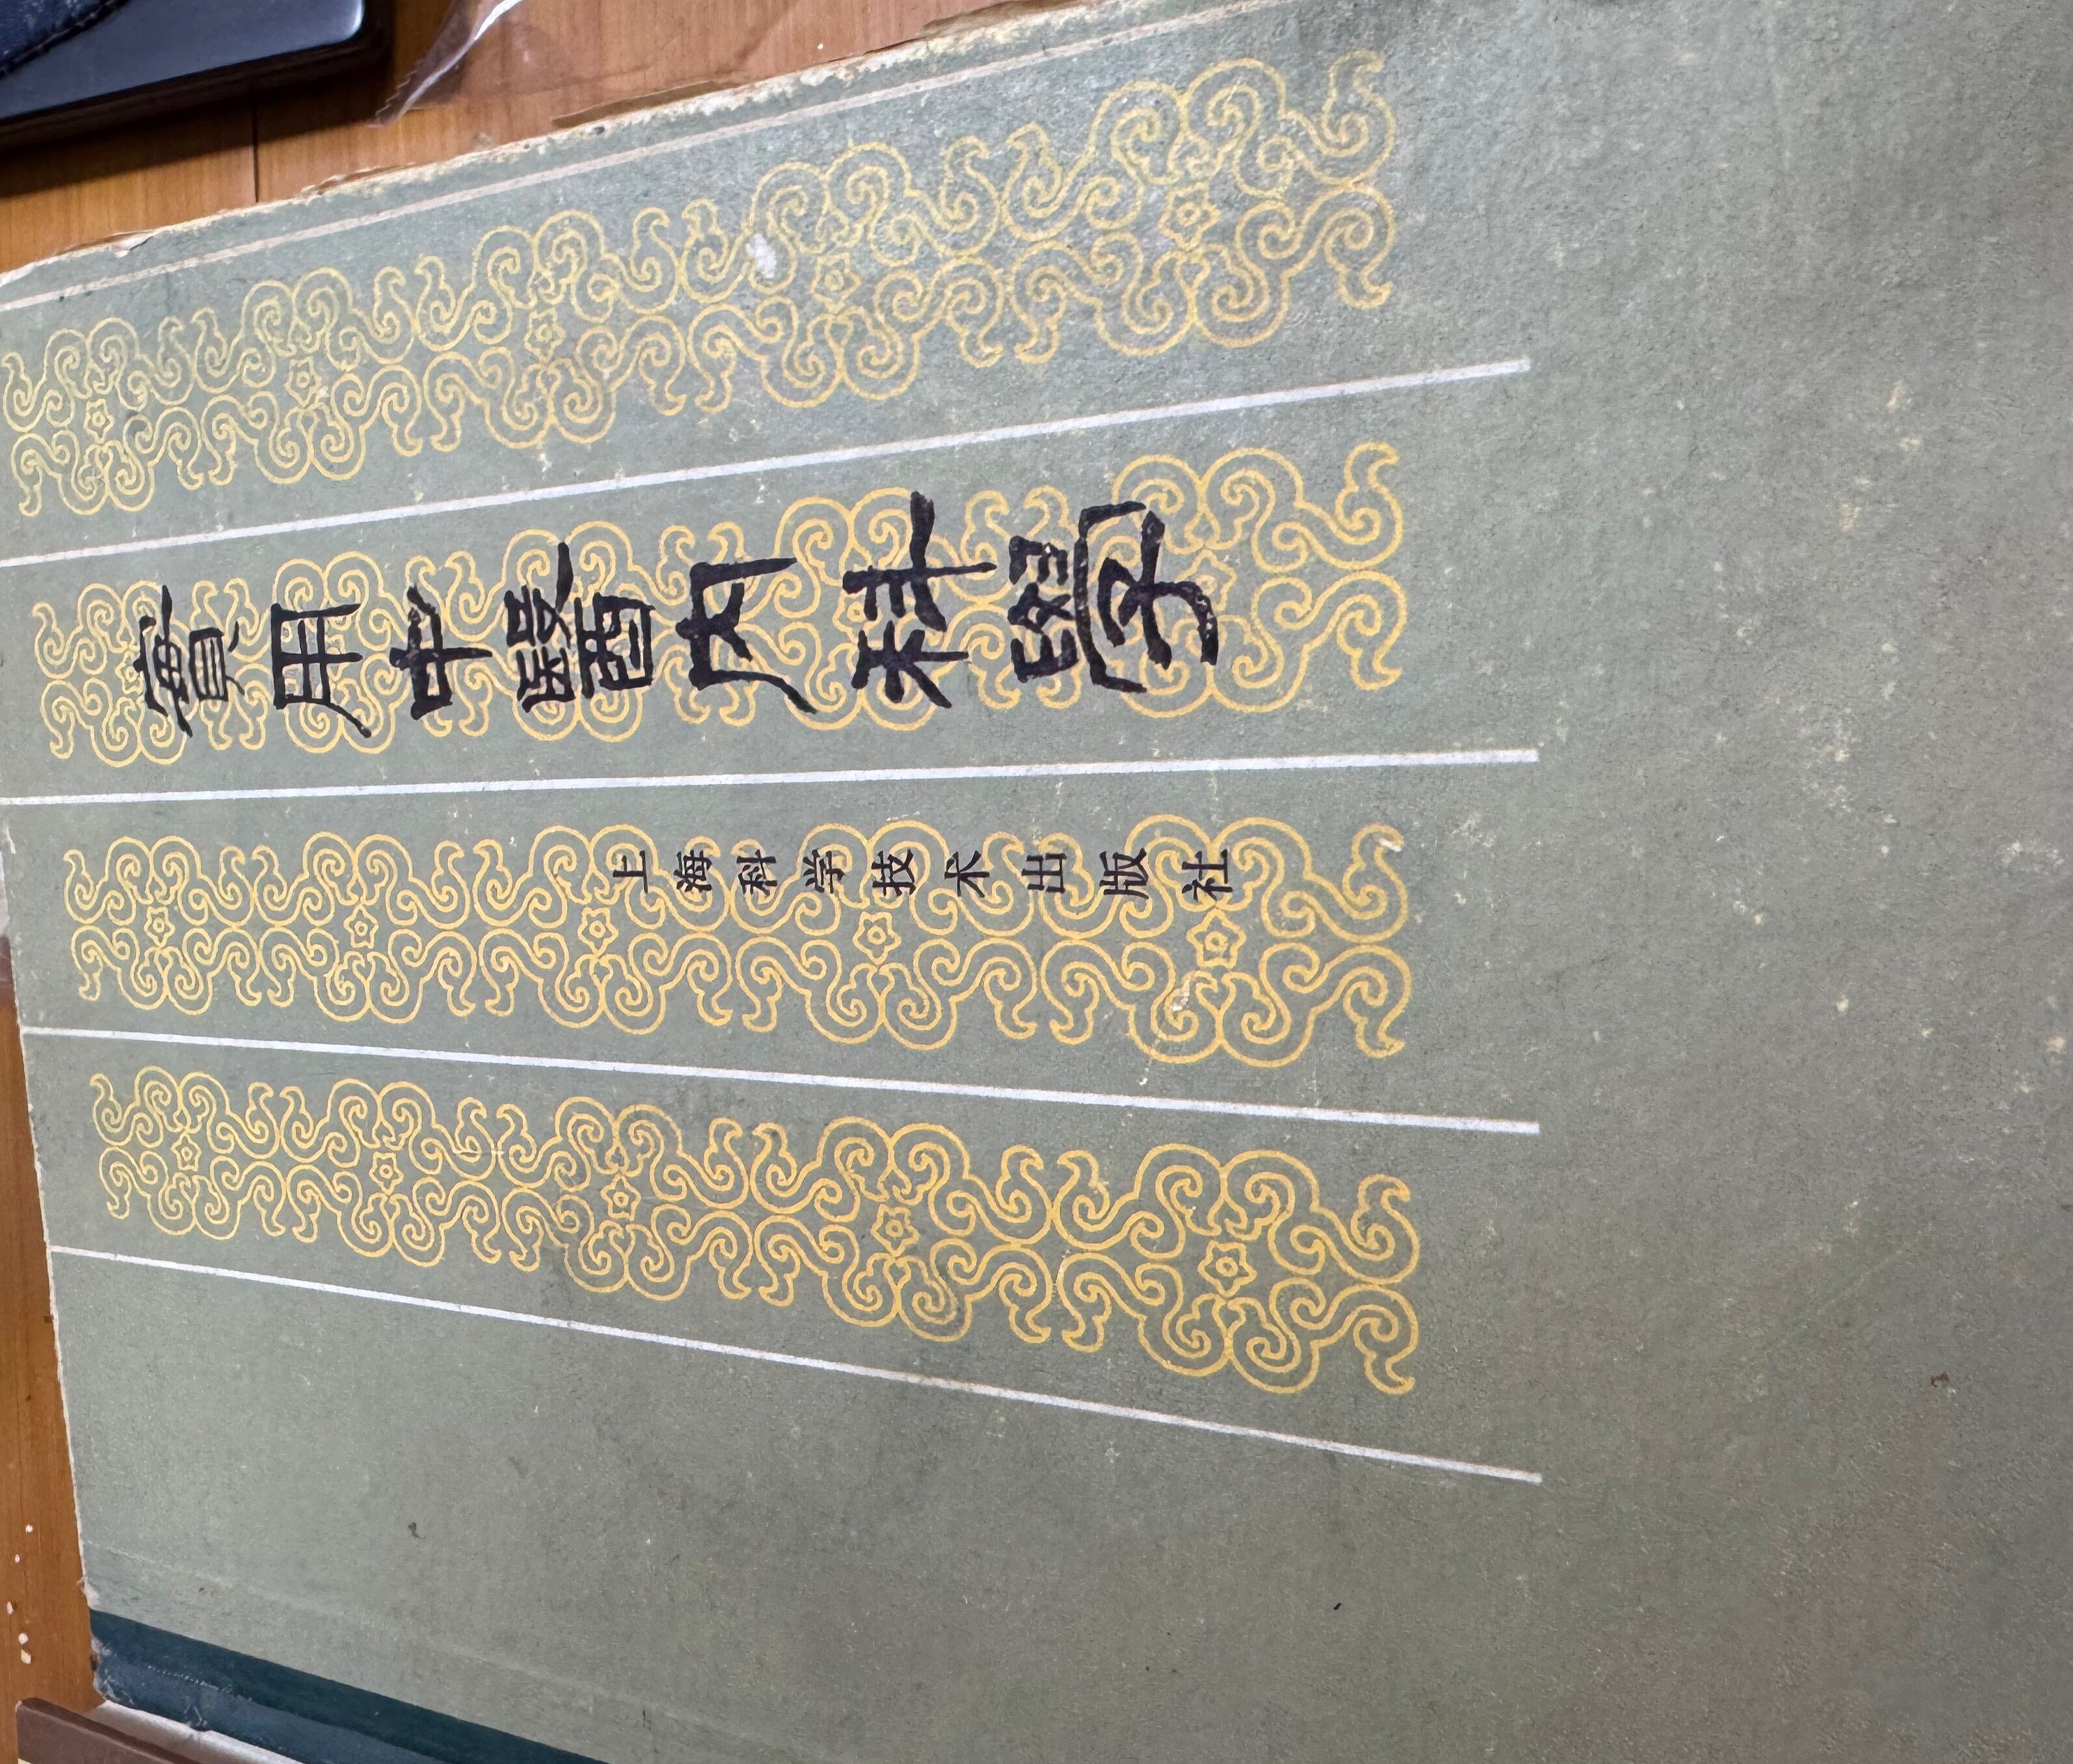 實用中醫內科學
上海科学技术出版社